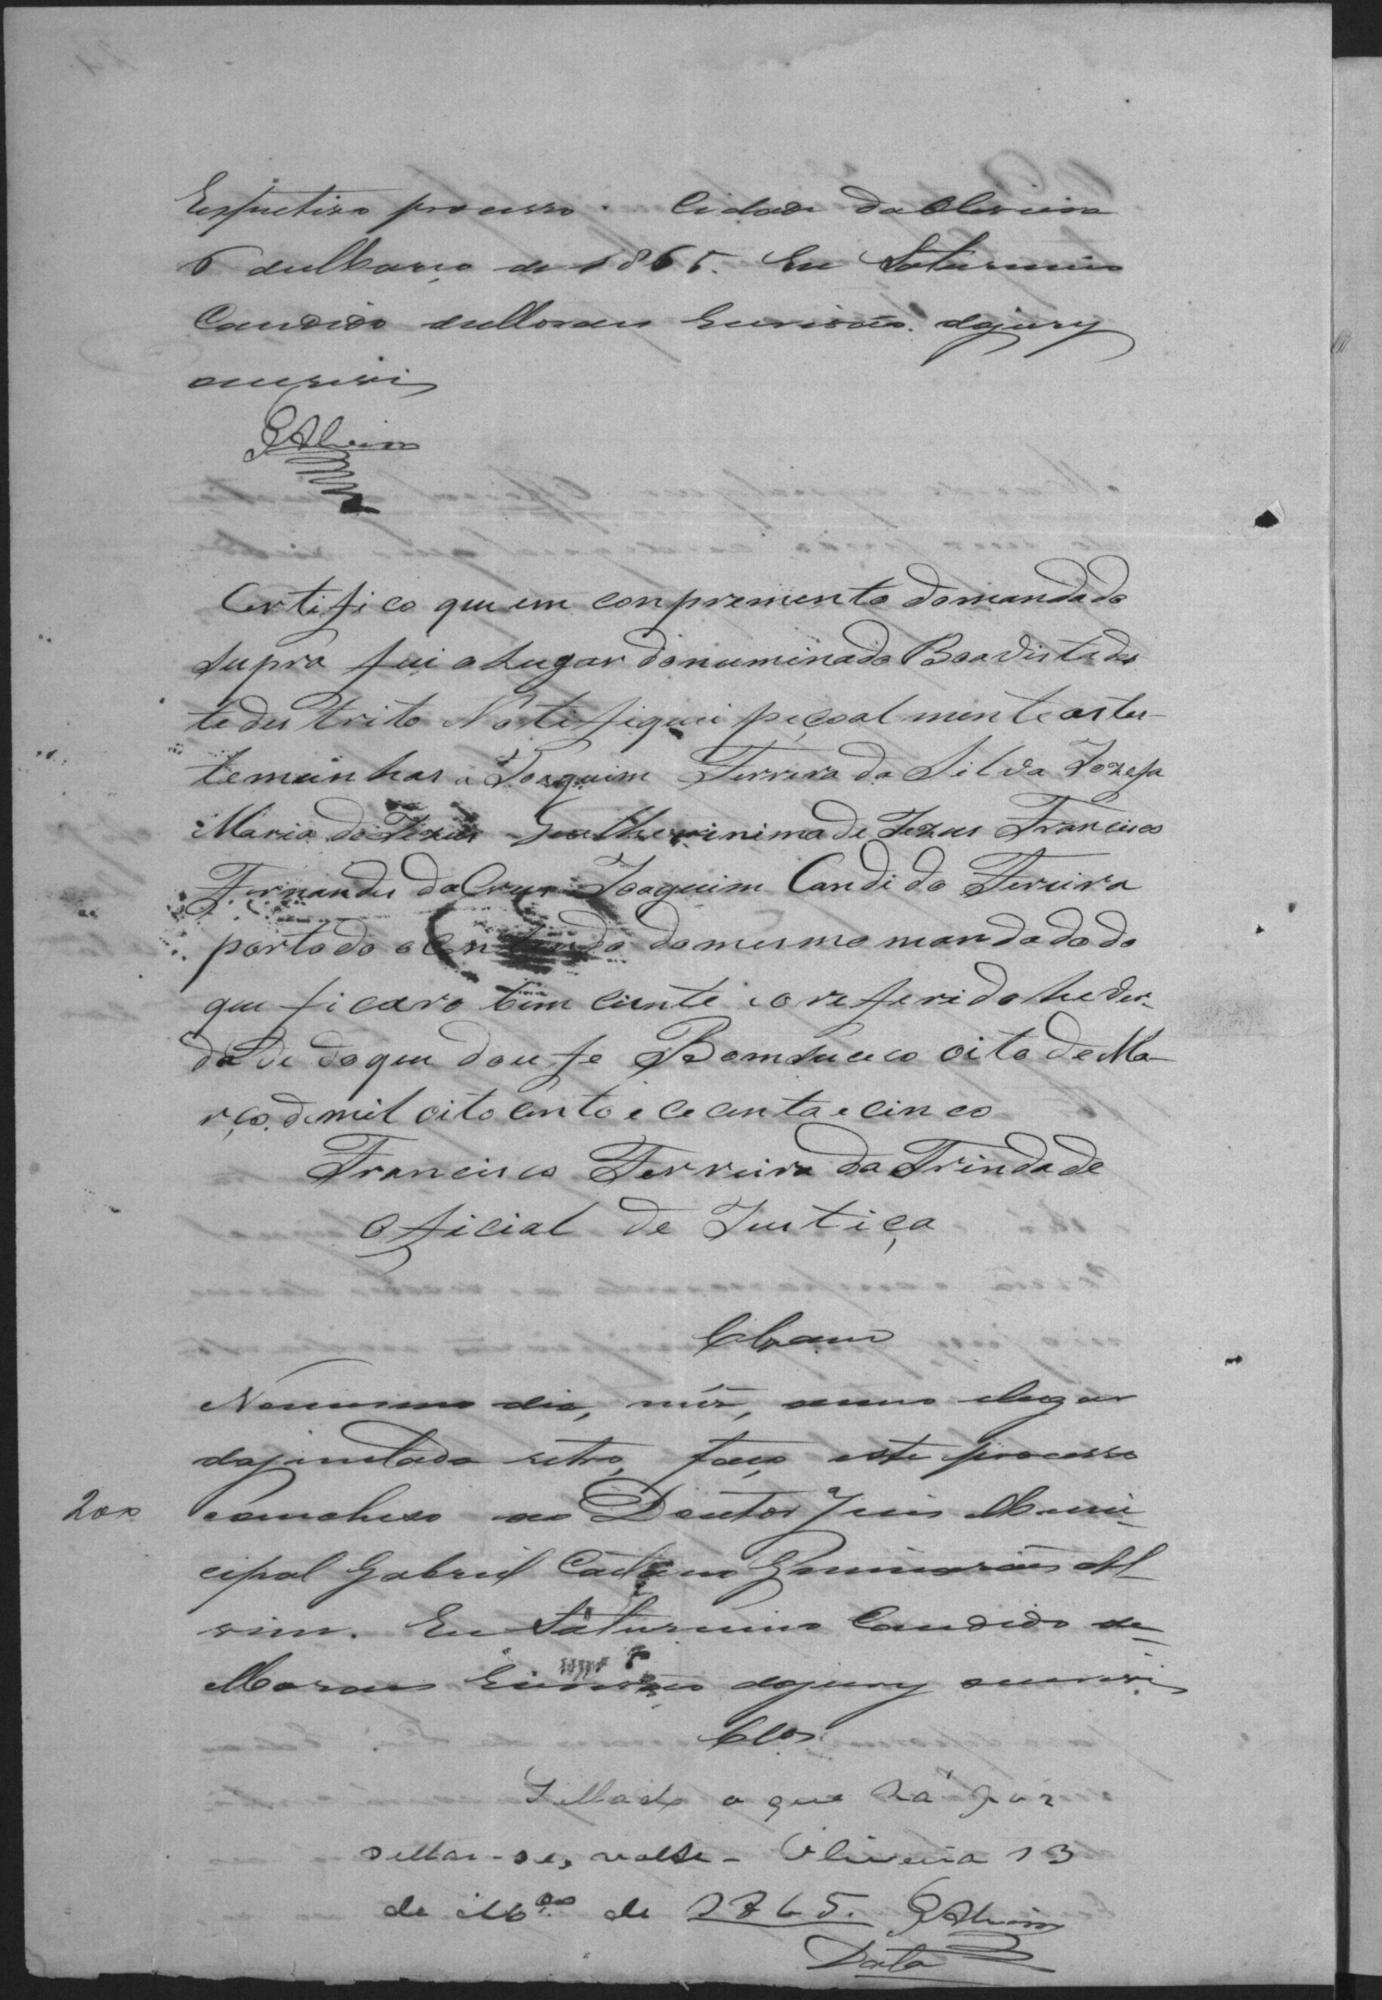 Respectivo processo. Cidade da Oliveira
6 de Março de 1865. Eu Saturnino
Candido de Moraes Escrivão do jury
o escrevi
GAlvim
Certifico que em conpremento do mandado
supra fui o lugar donuminado Boa Vista des
te destrito Notefiquei peçoal mente as tes-
temunhas a Joaquim Ferrera da Silva Jozefa
Maria de Jezus Gualherinima de Jezus Francisco
Fernandes da Crus Joaquim Candido Fereira
por todo o Contendo do mesmo mandado do
que ficaro bem ciente i o referido he ver-
dade do que dou fe Bom Suceco oito de Ma-
rço de mil oito cento e cecenta e cinco
Francisco Ferreira da Trindade
Oficial de Justiça
Clzam
No mesmo dia, mês, anno e lugar
da juntada retro, faço este processo
200
concluso ao Doutor Juis Muni-
cipal Gabriel Caetano Guimarães Al-
vim. Eu Saturnino Candido de
Moraes Escrivão do jury o escrevi
Clos
Sellado o que há por
sellar-se, volte - Oliveira 13
de Mço de 1865. GAlvim
Data